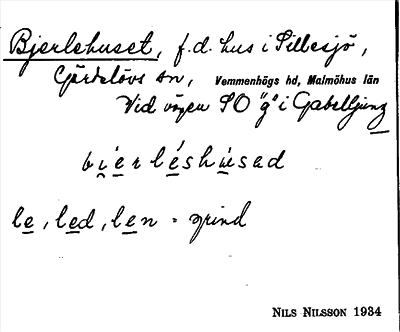 Bjerlehuset, f.d. hus i Sillesjö,
Gärdslövs sn, Vemmenhögs hd, Malmöhus län
Vid vägen SO "g" i Gabelljung
bjerléshúsad
le, led, len = grind
NILS NILSSON 1934